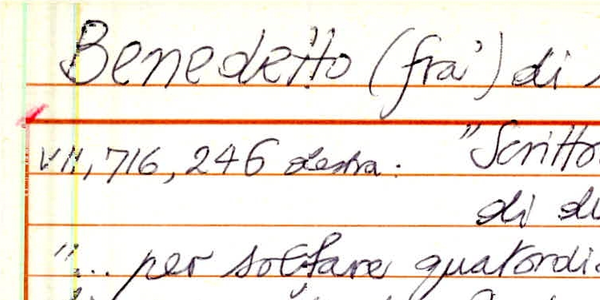 Benedetto (fra') di
VII, 716, 246 destra: "Scritto
di du
"... per solfare quatordi